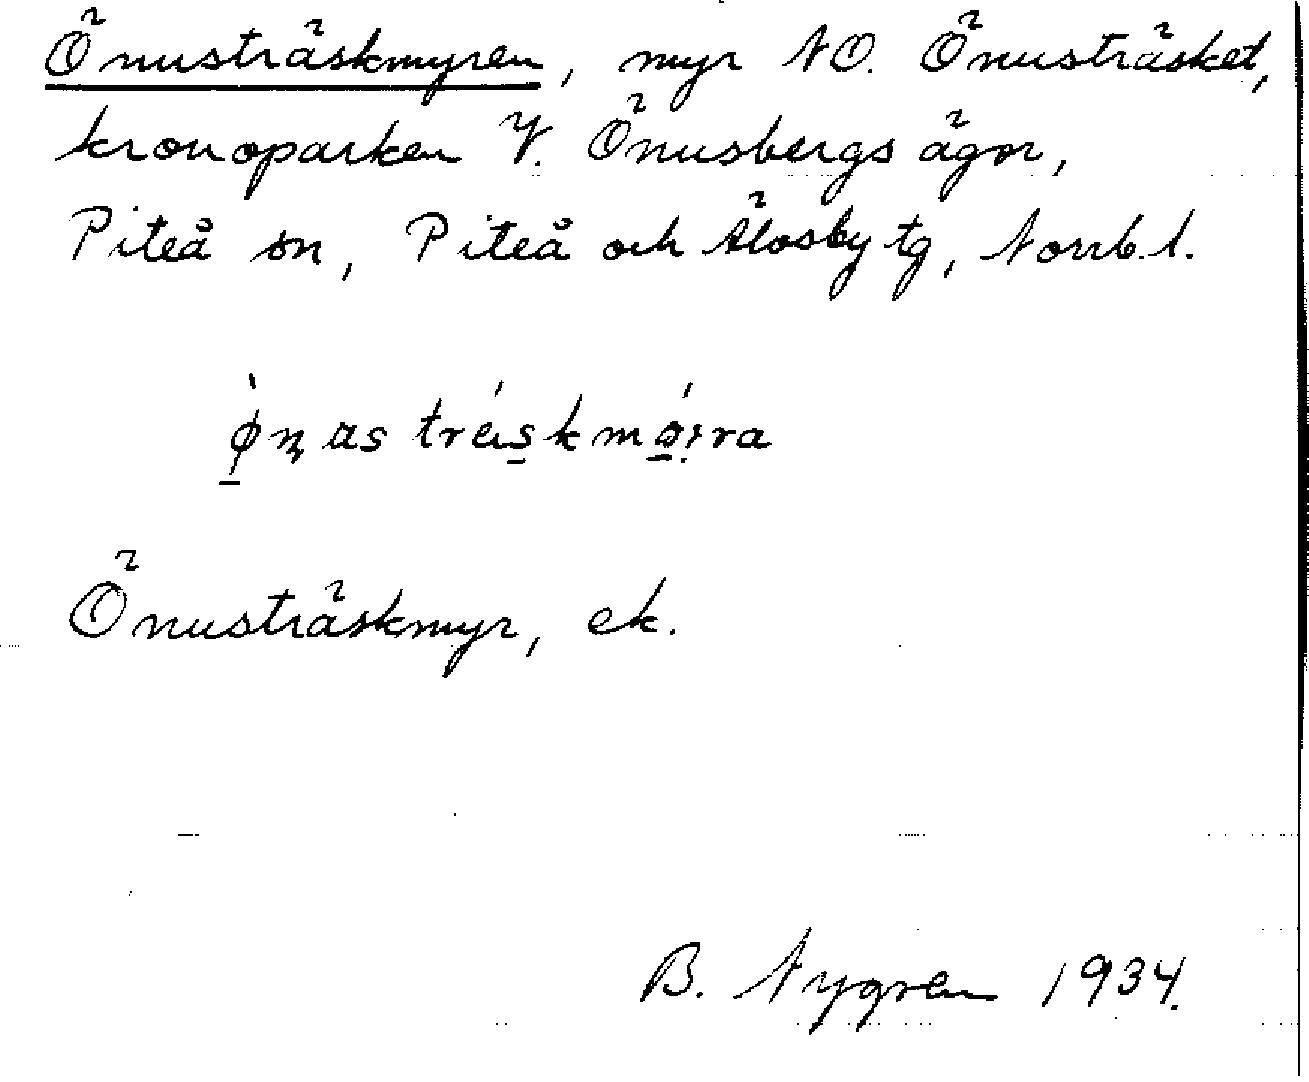 Önusträskmyren, myr NO. Önusträsket,
kronoparken V. Önusbergs ägor,
Piteå sn, Piteå och Älvsby tg, Norrb. l.
Önusträskmyr, ek.
B. Nygren 1934.